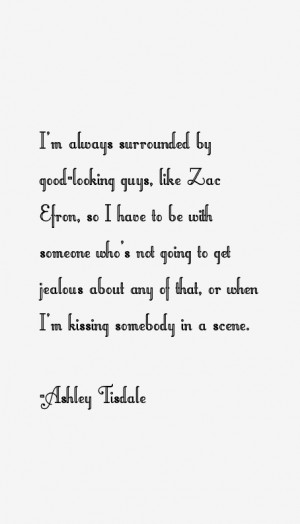 I'm always surrounded by
good-looking guys, like Zac
Efron, so I have to be with
someone who's not going to get
jealous about any of that, or when
I'm kissing somebody in a scene.
-Ashley Tisdale